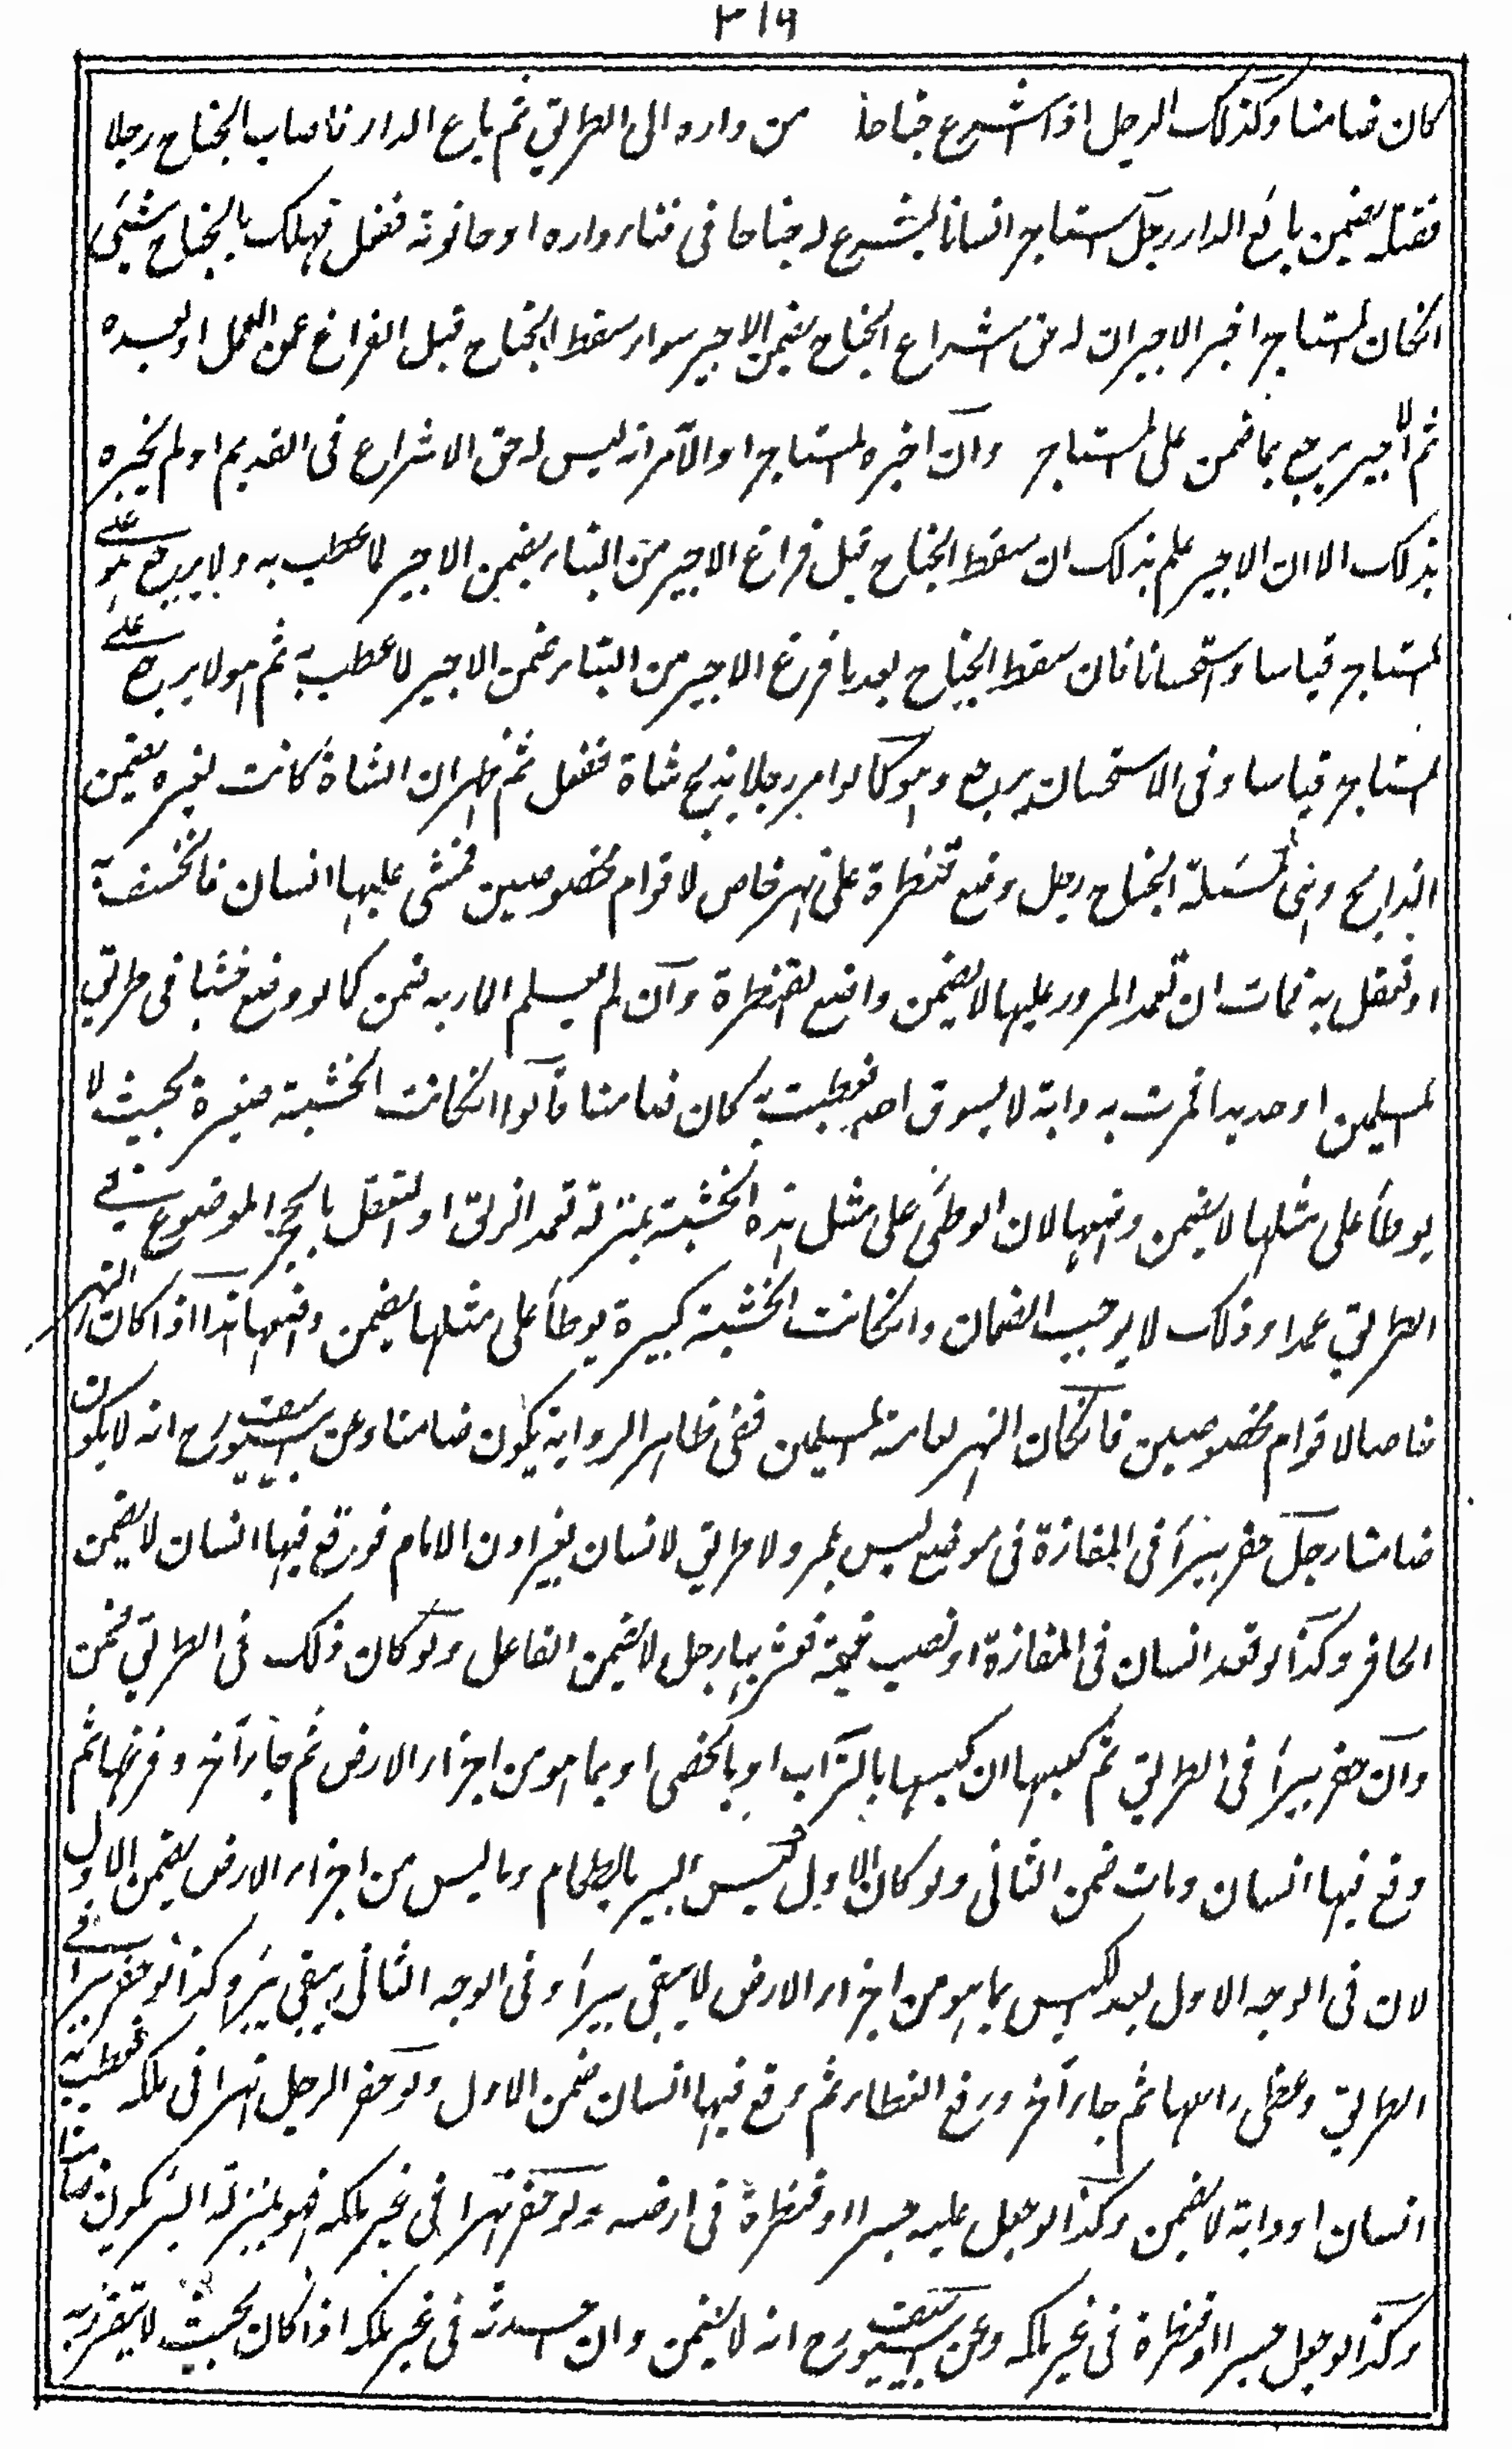 ٣١٩
كان ضامنا وكذلك الرجل اذا اشرع جناحا من داره الى الطريق ثم باع الدار فاصاب الجناح رجلا
فقتله يضمن بائع الدار رجل استاجر انسانا ليشرع له جناحا فى فناء داره او حانوته ففعل فهلك بالجناح شيئ
انكان المستاجر اخبر الاجير ان له حق اشراع الجناح يضمن الاجير سواء سقط الجناح قبل الفراغ عن العمل او بعده
ثم الاجير يرجع بما ضمن على المستاجر وان اخبره المستاجر او الآمر انه ليس له حق الاشراع فى القديم او لم يخبره
بذلك الا ان الاجير علم بذلك ان سقط الجناح قبل فراغ الاجير من البناء يضمن الاجير لما عطب به ولا يرجع هو على
المستاجر قياسا واستحسانا فان سقط الجناح بعد ما فرغ الاجير من البناء ضمن الاجير لما عطب به ثم هو لا يرجع على
المستاجر قياسا وفى الاستحسان يرجع وهو كما لو امر رجلا بذبح شاة ففعل ثم ظهر ان الشاة كانت لغيره يضمن
الذابح وفى مسئلة الجناح رجل وضع قنطرة على نهر خاص لاقوام مخصوصين فمشى عليها انسان فانخسفت به
او تعقل به فمات ان تعمد المرور عليها لا يضمن واضع القنطرة وان لم يعلم المار به ضمن كما لو وضع خشبا فى طريق
المسلمين او حديدا فمرت به دابة لا يسوق احد فعطبت به كان ضامنا قالوا انكانت الخشبة صغيرة بحيث لا
يوطأ على مثلها لا يضمن واضعها لان الوطئ على مثل هذه الخشبة بمنزلة تعمد الزلق او التعقل بالحجر الموضوع فى
الطريق عمدا وذلك لا يوجب الضمان وانكانت الخشبة كبيرة يوطأ على مثلها يضمن واضعها هذا اذا كان النهر
خاصا لاقوام مخصوصين فانكان النهر لعامة المسلمين ففى ظاهر الرواية يكون ضامنا وعن ابى يوسف رح انه لا يكون
ضامنا رجل حفر بيرأ فى المفازة فى موضع ليس بممر ولا طريق لانسان بغير اذن الامام فوقع فيها انسان لا يضمن
الحافر وكذا لو قعد انسان فى المفازة او نصب خيمة فعثر بها رجل لا يضمن الفاعل ولو كان ذلك فى الطريق ضمن
وان حفر بيرأ فى الطريق ثم كبسها ان كبسها بالتراب او بالحصى او بما هو من اجزاء الارض ثم جاء آخر وفرغها ثم
وقع فيها انسان ومات ضمن الثانى ولو كان الاول كبس البير بالطعام وما ليس من اجزاء الارض يضمن الاول
لان فى الوجه الاول بعد الكبس بما هو من اجزاء الارض لا يبقى بيرأ وفى الوجه الثانى يبقى بيرا وكذا لو حفر بيرا فى
الطريق وغطى راسها ثم جاء آخر ورفع الغطاء ثم وقع فيها انسان ضمن الاول ولو حفر الرجل نهرا فى ملكه فعطب به
انسان او دابة لا يضمن وكذا لو جعل عليه جسرا او قنطرة فى ارضه ولو حفر نهرا فى غير ملكه فهو بمنزلة البئر يكون ضامنا
وكذا لو جعل جسرا او قنطرة فى غير ملكه وعن ابى يوسف رح انه لا يضمن وان احدثه فى غير ملكه اذا كان بحيث لا يتضرر به